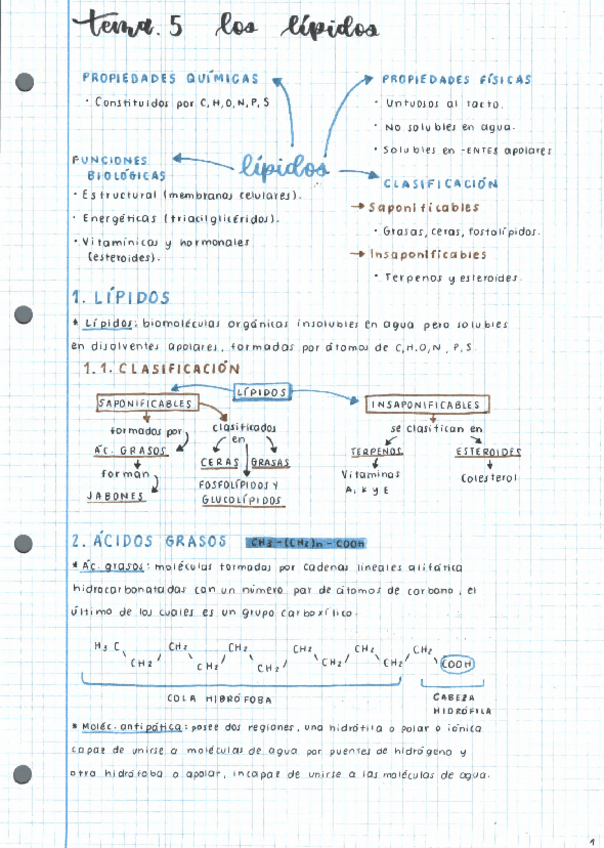 tema. 5 los lípidos
PROPIEDADES QUÍMICAS
· Constituidos por C, H, O, N, P, S
PROPIEDADES FÍSICAS
· Untuosos al tacto.
· No solubles en agua.
· Solubles en -ENTES apolares
FUNCIONES
BIOLÓGICAS
lípidos
· Estructural (membranas celulares).
· Energéticas (triacilglicéridos).
· Vitamínicas y hormonales
(esteroides).
CLASIFICACIÓN
→ Saponificables
· Grasas, ceras, fosfolípidos.
→ Insaponificables
· Terpenos y esteroides.
1. LÍPIDOS
* Lípidos: biomoléculas orgánicas insolubles en agua pero solubles
en disolventes apolares, formadas por átomos de C, H, O, N, P, S.
1.1. CLASIFICACIÓN
LÍPIDOS
SAPONIFICABLES
INSAPONIFICABLES
formados por
clasificados
en
se clasifican en
ÁC. GRASOS
CERAS
GRASAS
TERPENOS
ESTEROIDES
forman
JABONES
FOSFOLÍPIDOS Y
GLUCOLÍPIDOS
Vitaminas
A, K y E
Colesterol
2. ÁCIDOS GRASOS CH3-(CH2)n-COOH
* Ác. grasos: moléculas formadas por cadenas lineales alifática
hidrocarbonatadas con un número par de átomos de carbono, el
último de los cuales es un grupo carboxílico.
H3C CH2 CH2 CH2 CH2 CH2 CH2 CH2 CH2 CH2 CH2 COOH
COLA HIDRÓFOBA
CABEZA
HIDRÓFILA
* Moléc. antipática: posee dos regiones, una hidrófila o polar o iónica
capaz de unirse a moléculas de agua por puentes de hidrógeno y
otra hidrófoba o apolar, incapaz de unirse a las moléculas de agua.
1